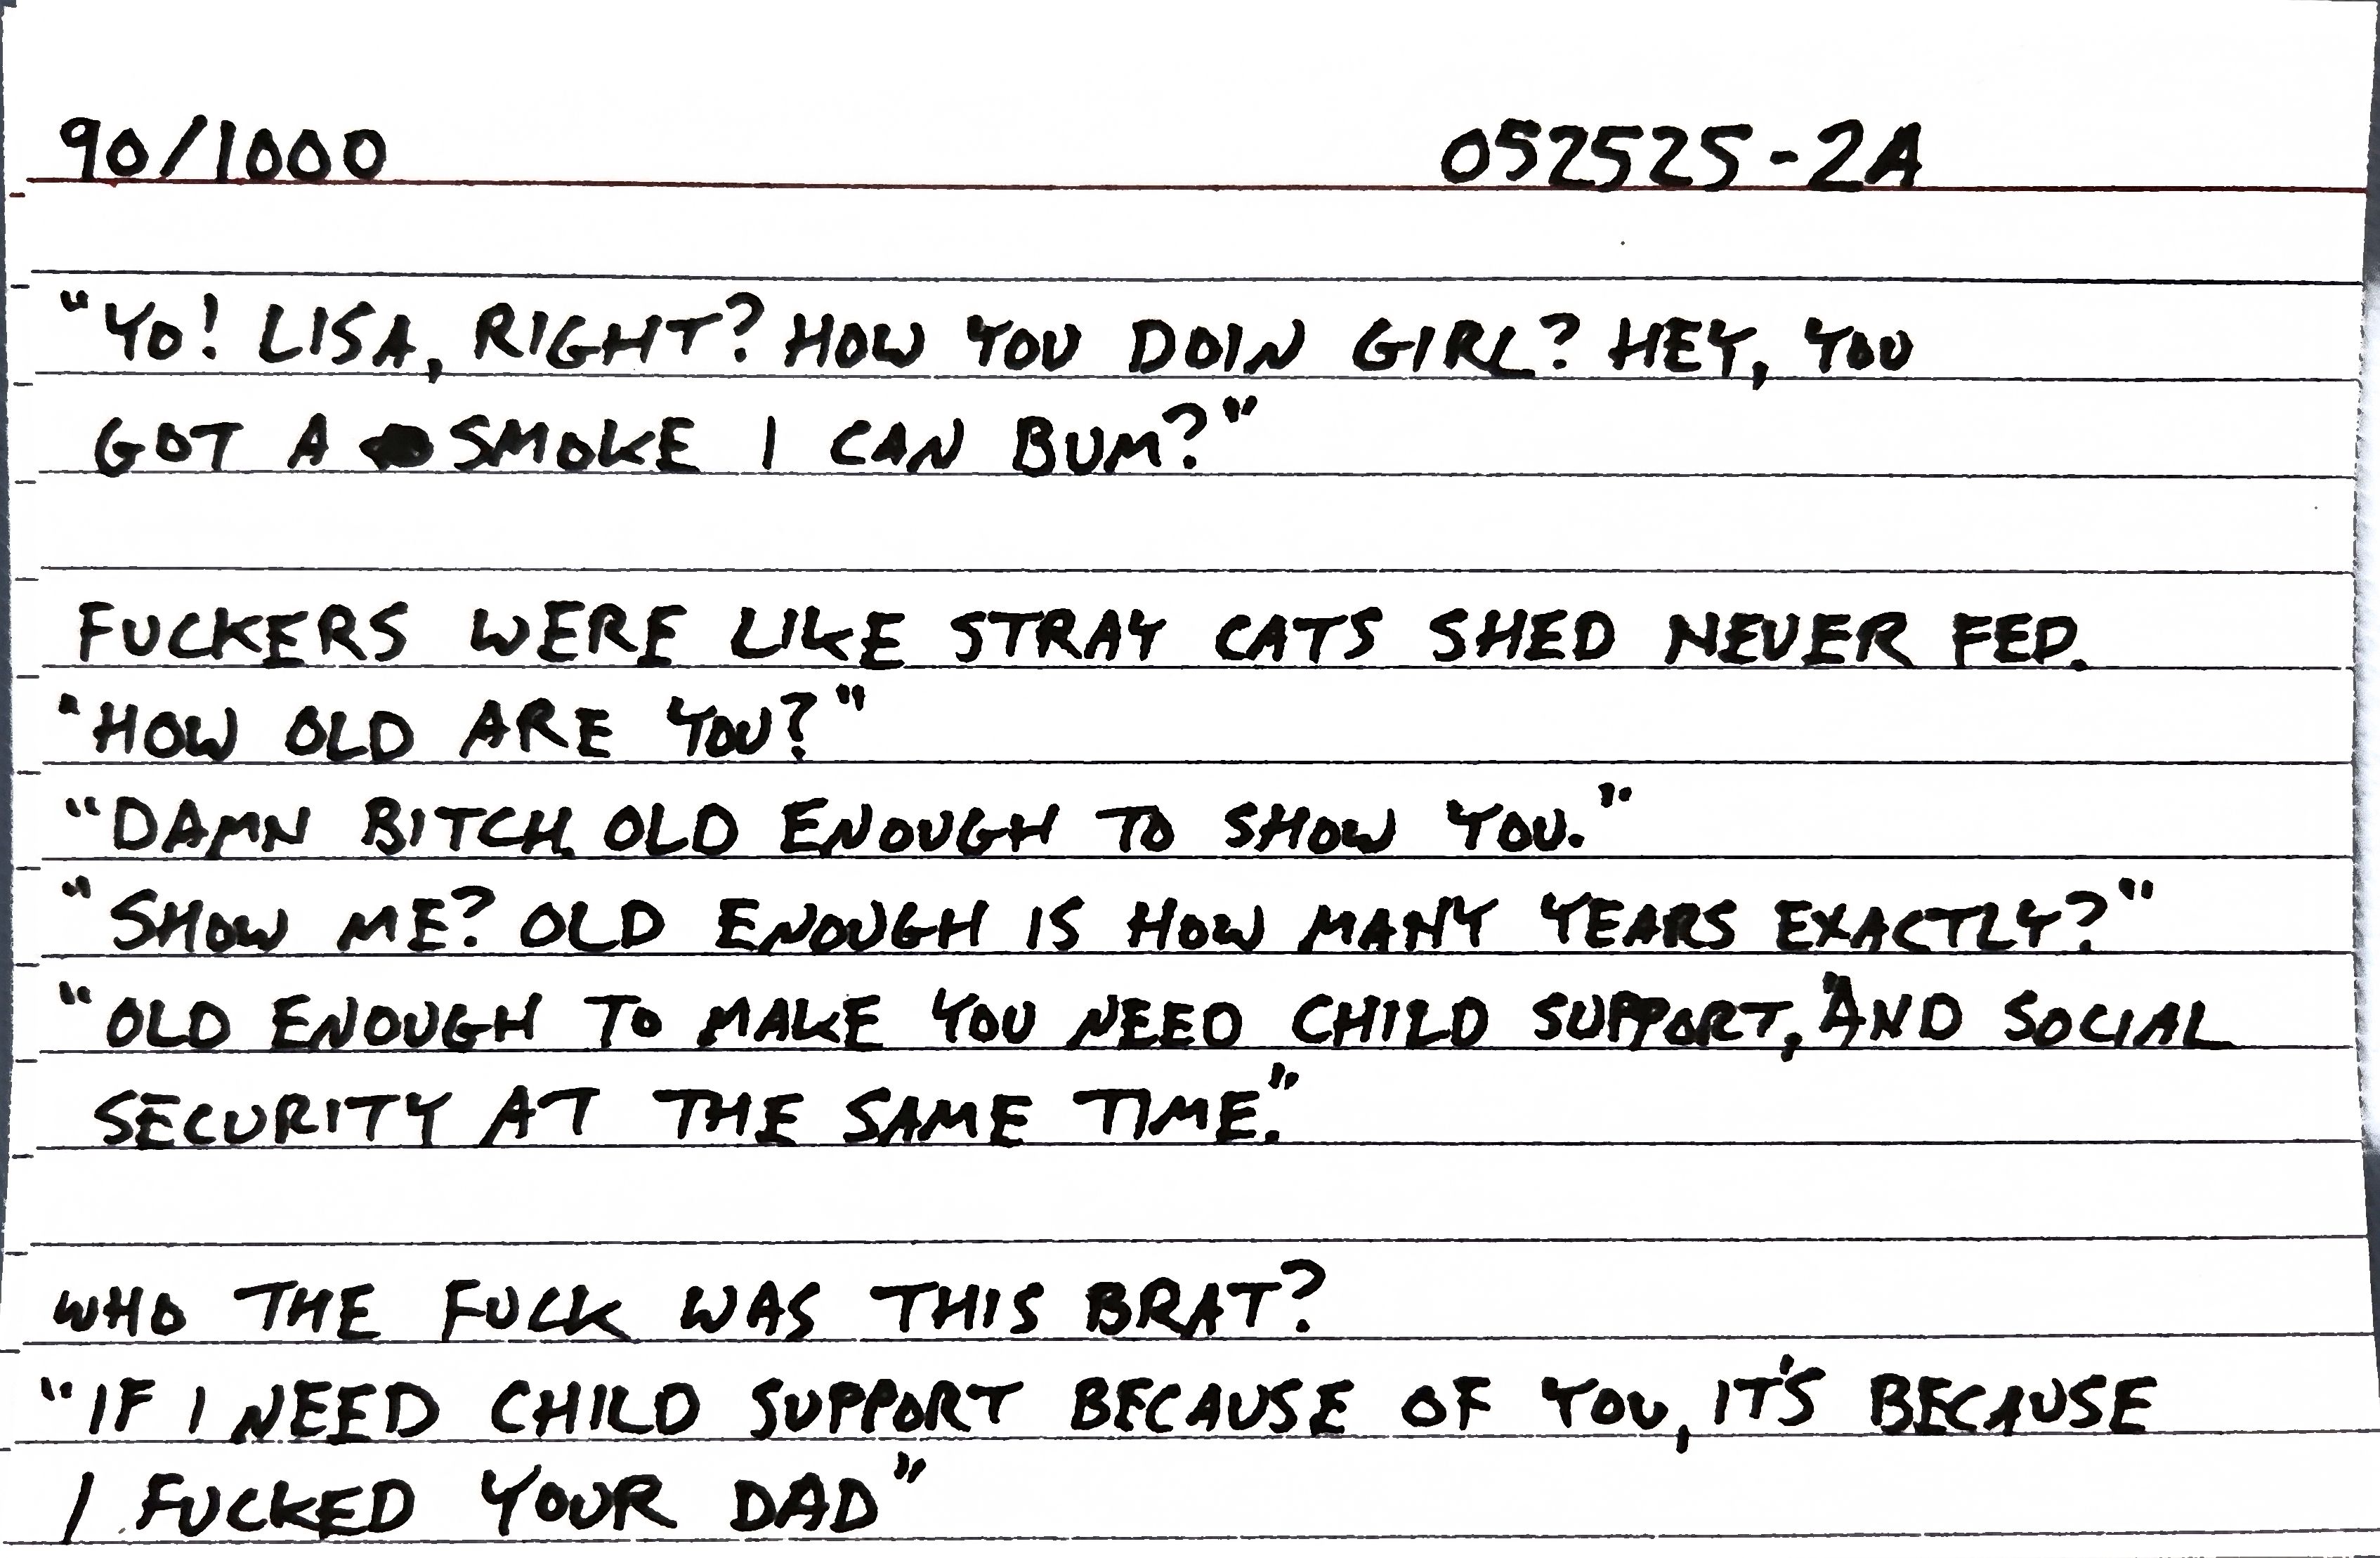 90/1000 052525-2A
"YO! LISA, RIGHT? HOW YOU DOIN GIRL? HEY, YOU
GOT A SMOKE I CAN BUM?"
FUCKERS WERE LIKE STRAY CATS SHED NEVER FED.
"HOW OLD ARE YOU?"
"DAMN BITCH. OLD ENOUGH TO SHOW YOU."
"SHOW ME? OLD ENOUGH IS HOW MANY YEARS EXACTLY?"
"OLD ENOUGH TO MAKE YOU NEED CHILD SUPPORT, AND SOCIAL
SECURITY AT THE SAME TIME."
WHO THE FUCK WAS THIS BRAT?
"IF I NEED CHILD SUPPORT BECAUSE OF YOU, IT'S BECAUSE
I FUCKED YOUR DAD"